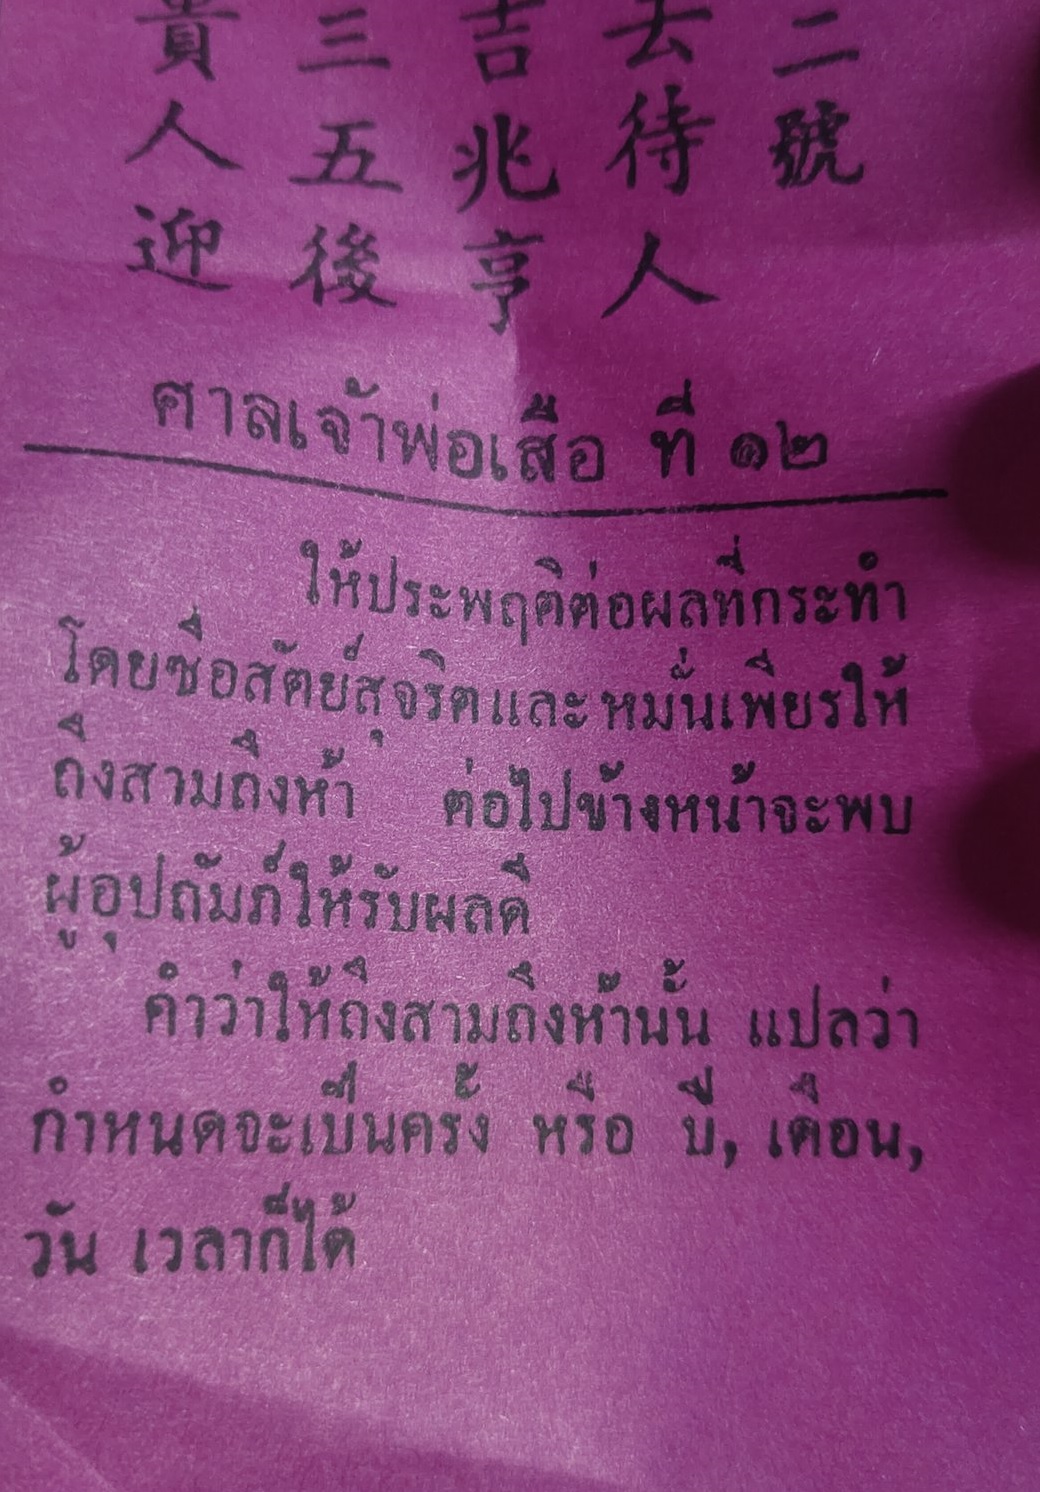 二號
去待人
吉兆亨
三五後
貴人迎
ศาลเจ้าพ่อเสือ ที่ ๑๒
ให้ประพฤติต่อผลที่กระทำ
โดยซื่อสัตย์สุจริตและหมั่นเพียรให้
ถึงสามถึงห้า ต่อไปข้างหน้าจะพบ
ผู้อุปถัมภ์ให้รับผลดี
คำว่าให้ถึงสามถึงห้านั้น แปลว่า
กำหนดจะเป็นครั้ง หรือ ปี, เดือน,
วัน เวลาก็ได้